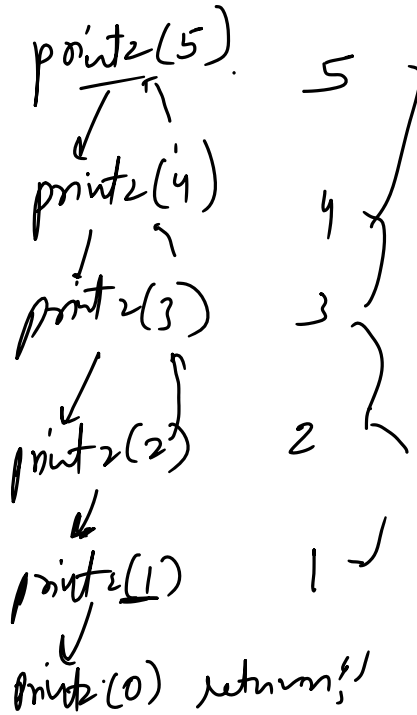 print2(5). 5
print2(4) 4
print2(3) 3
print2(2) 2
print2(1) 1
print2(0) return;